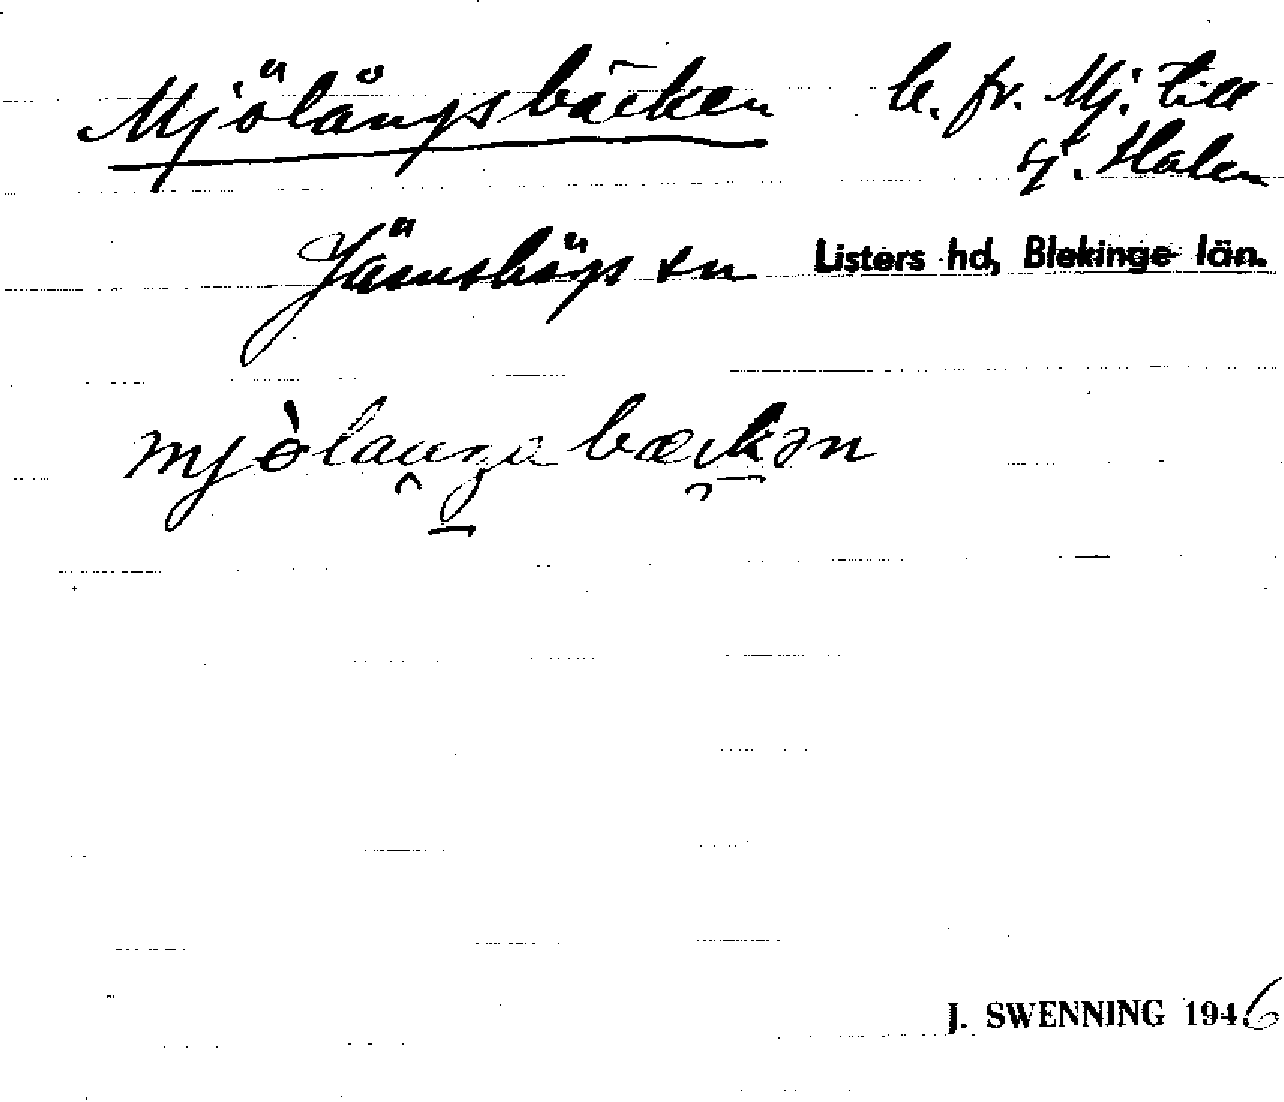 Mjölångsbäcken b. fr. Mj. till
sj. Halen
Jämshögs sn Listers hd, Blekinge län.
mjòlaunga bæckən
J. SWENNING 1946